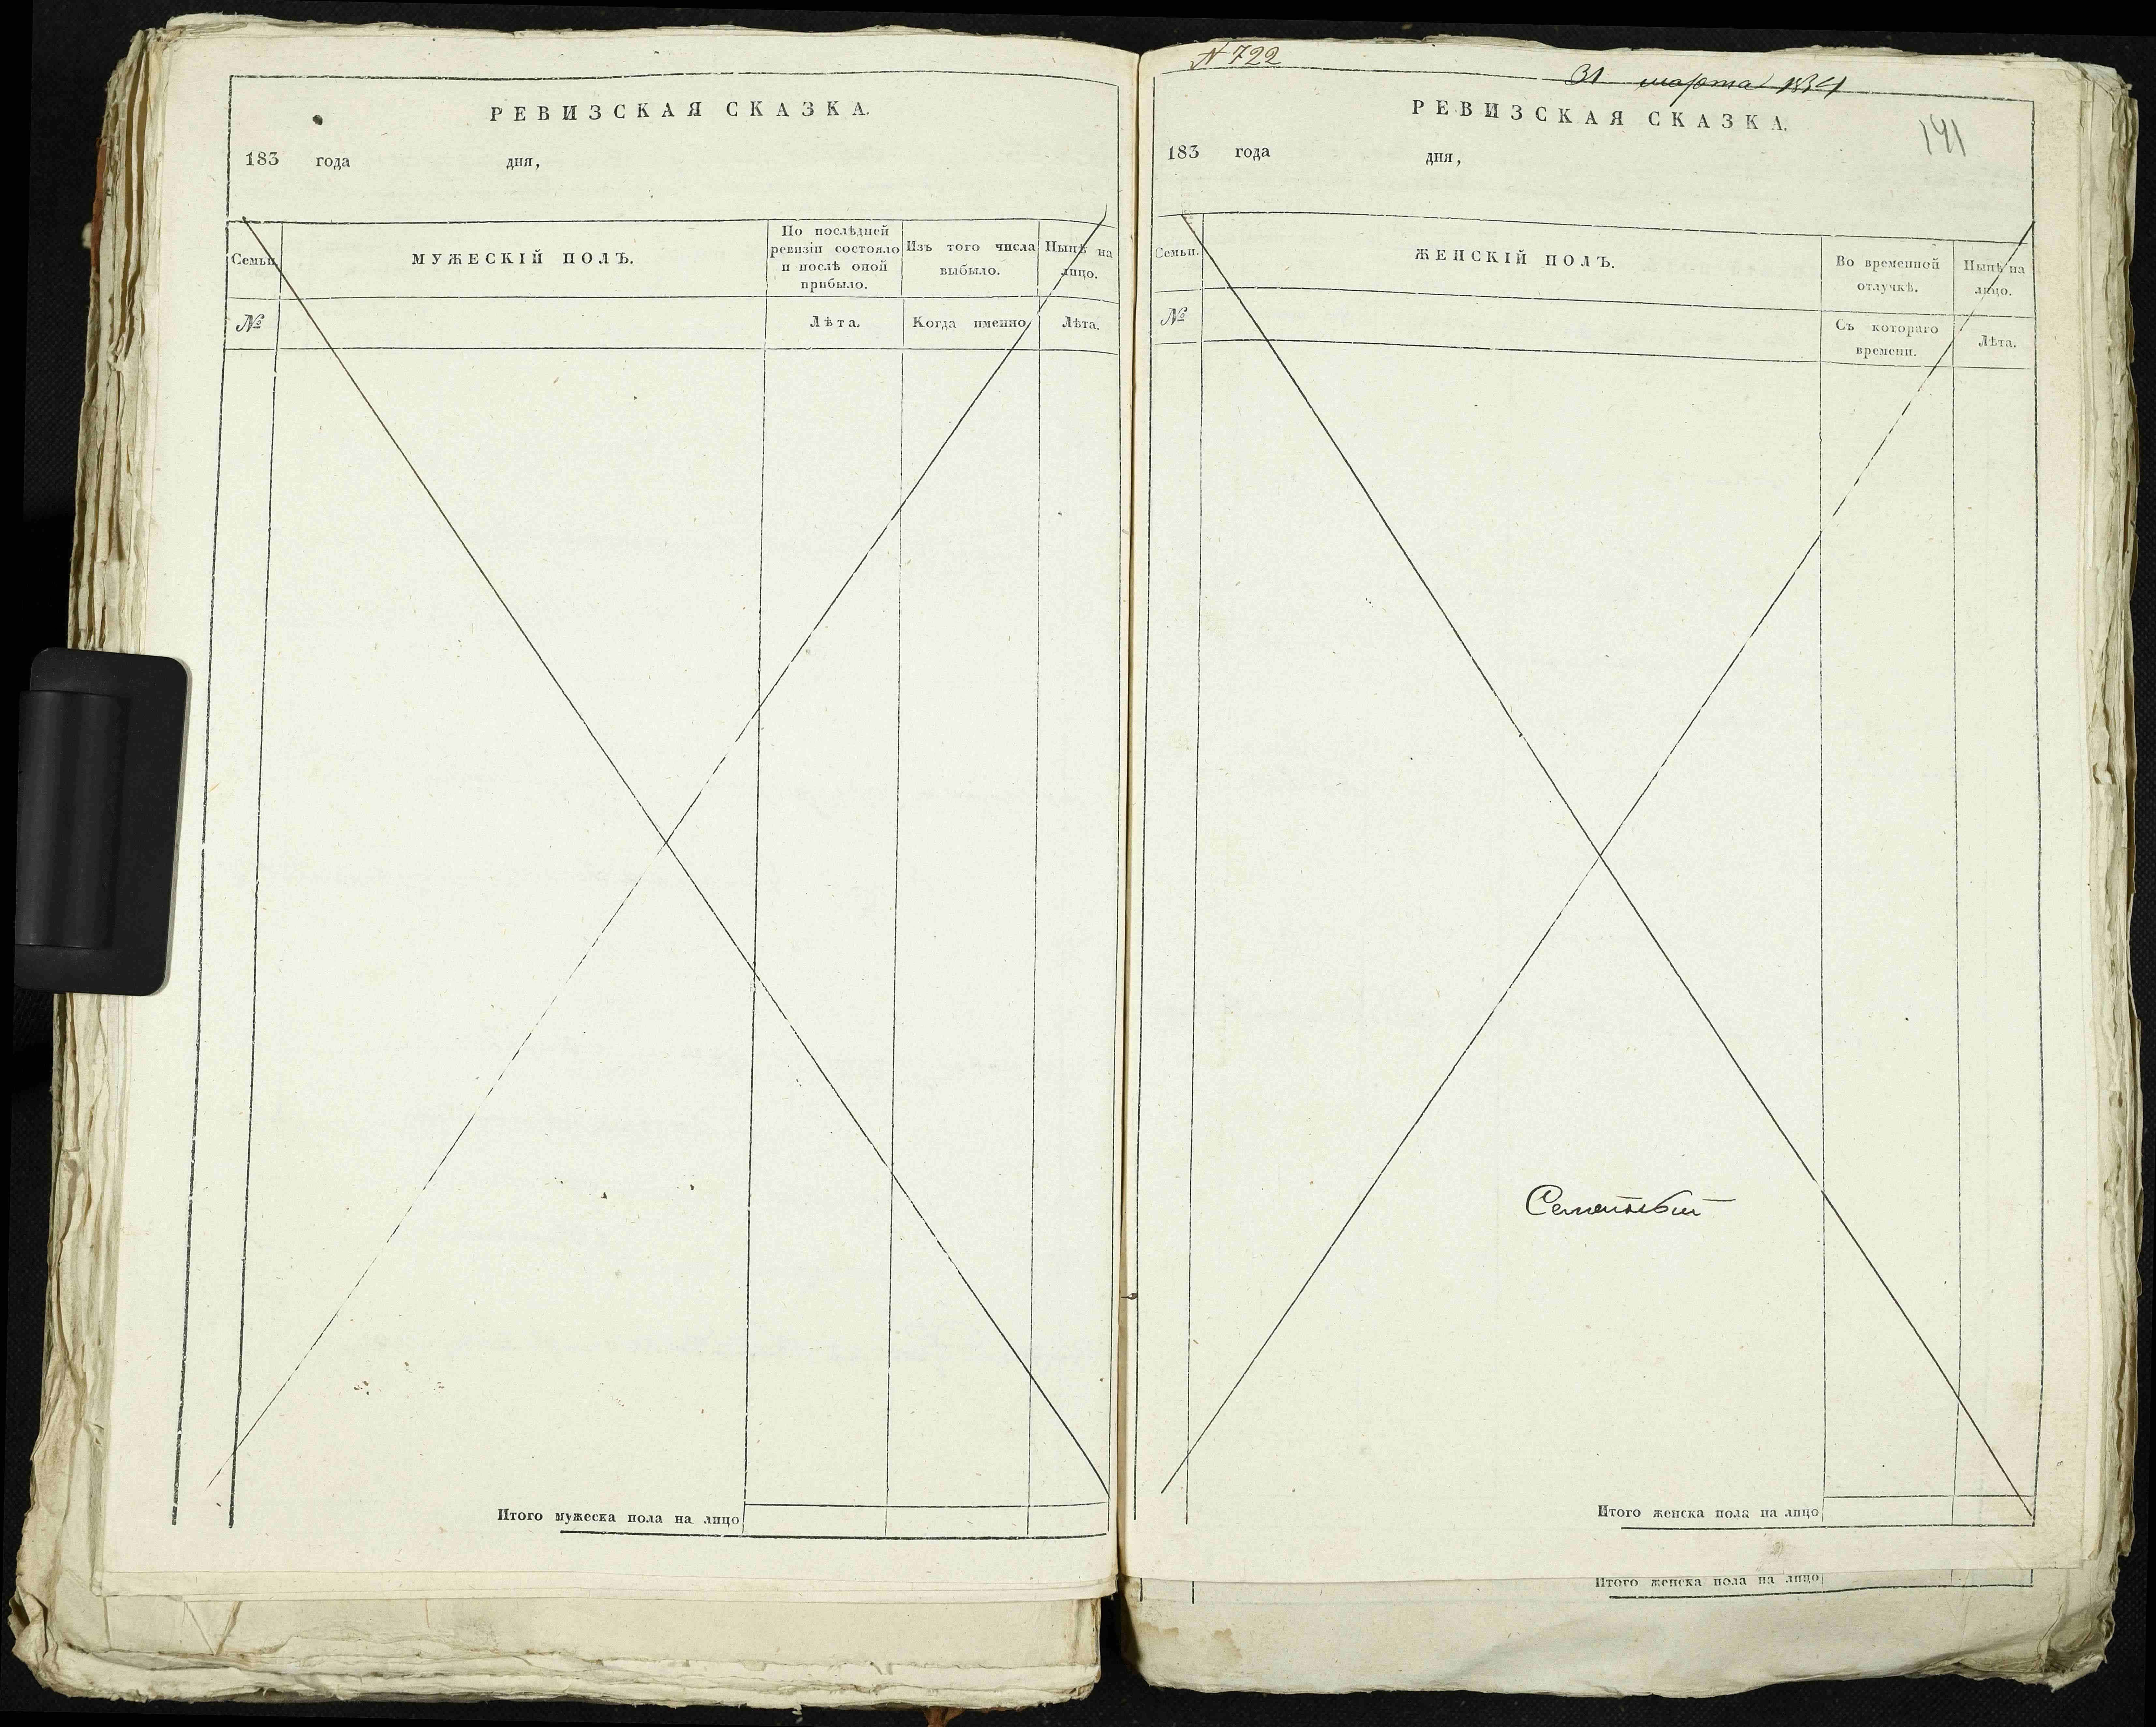 РЕВИЗСКАЯ СКАЗКА.
183 года дня,
Семьи
МУЖЕСКІЙ ПОЛЪ.
По послѣдней
ревизіи состояло
и послѣ оной
прибыло.
Изъ того числа
выбыло.
Нынѣ на
лицо.
№
Лѣта.
Когда именно
Лѣта.
Итого мужеска пола на лицо
N 722
31 марта 1834
РЕВИЗСКАЯ СКАЗКА.
141
183 года дня,
Семьи.
ЖЕНСКІЙ ПОЛЪ.
Во временной
отлучкѣ.
Нынѣ на
лицо.
№
Съ котораго
времени.
Лѣта.
Итого женска пола на лицо
Итого женска пола на лицо